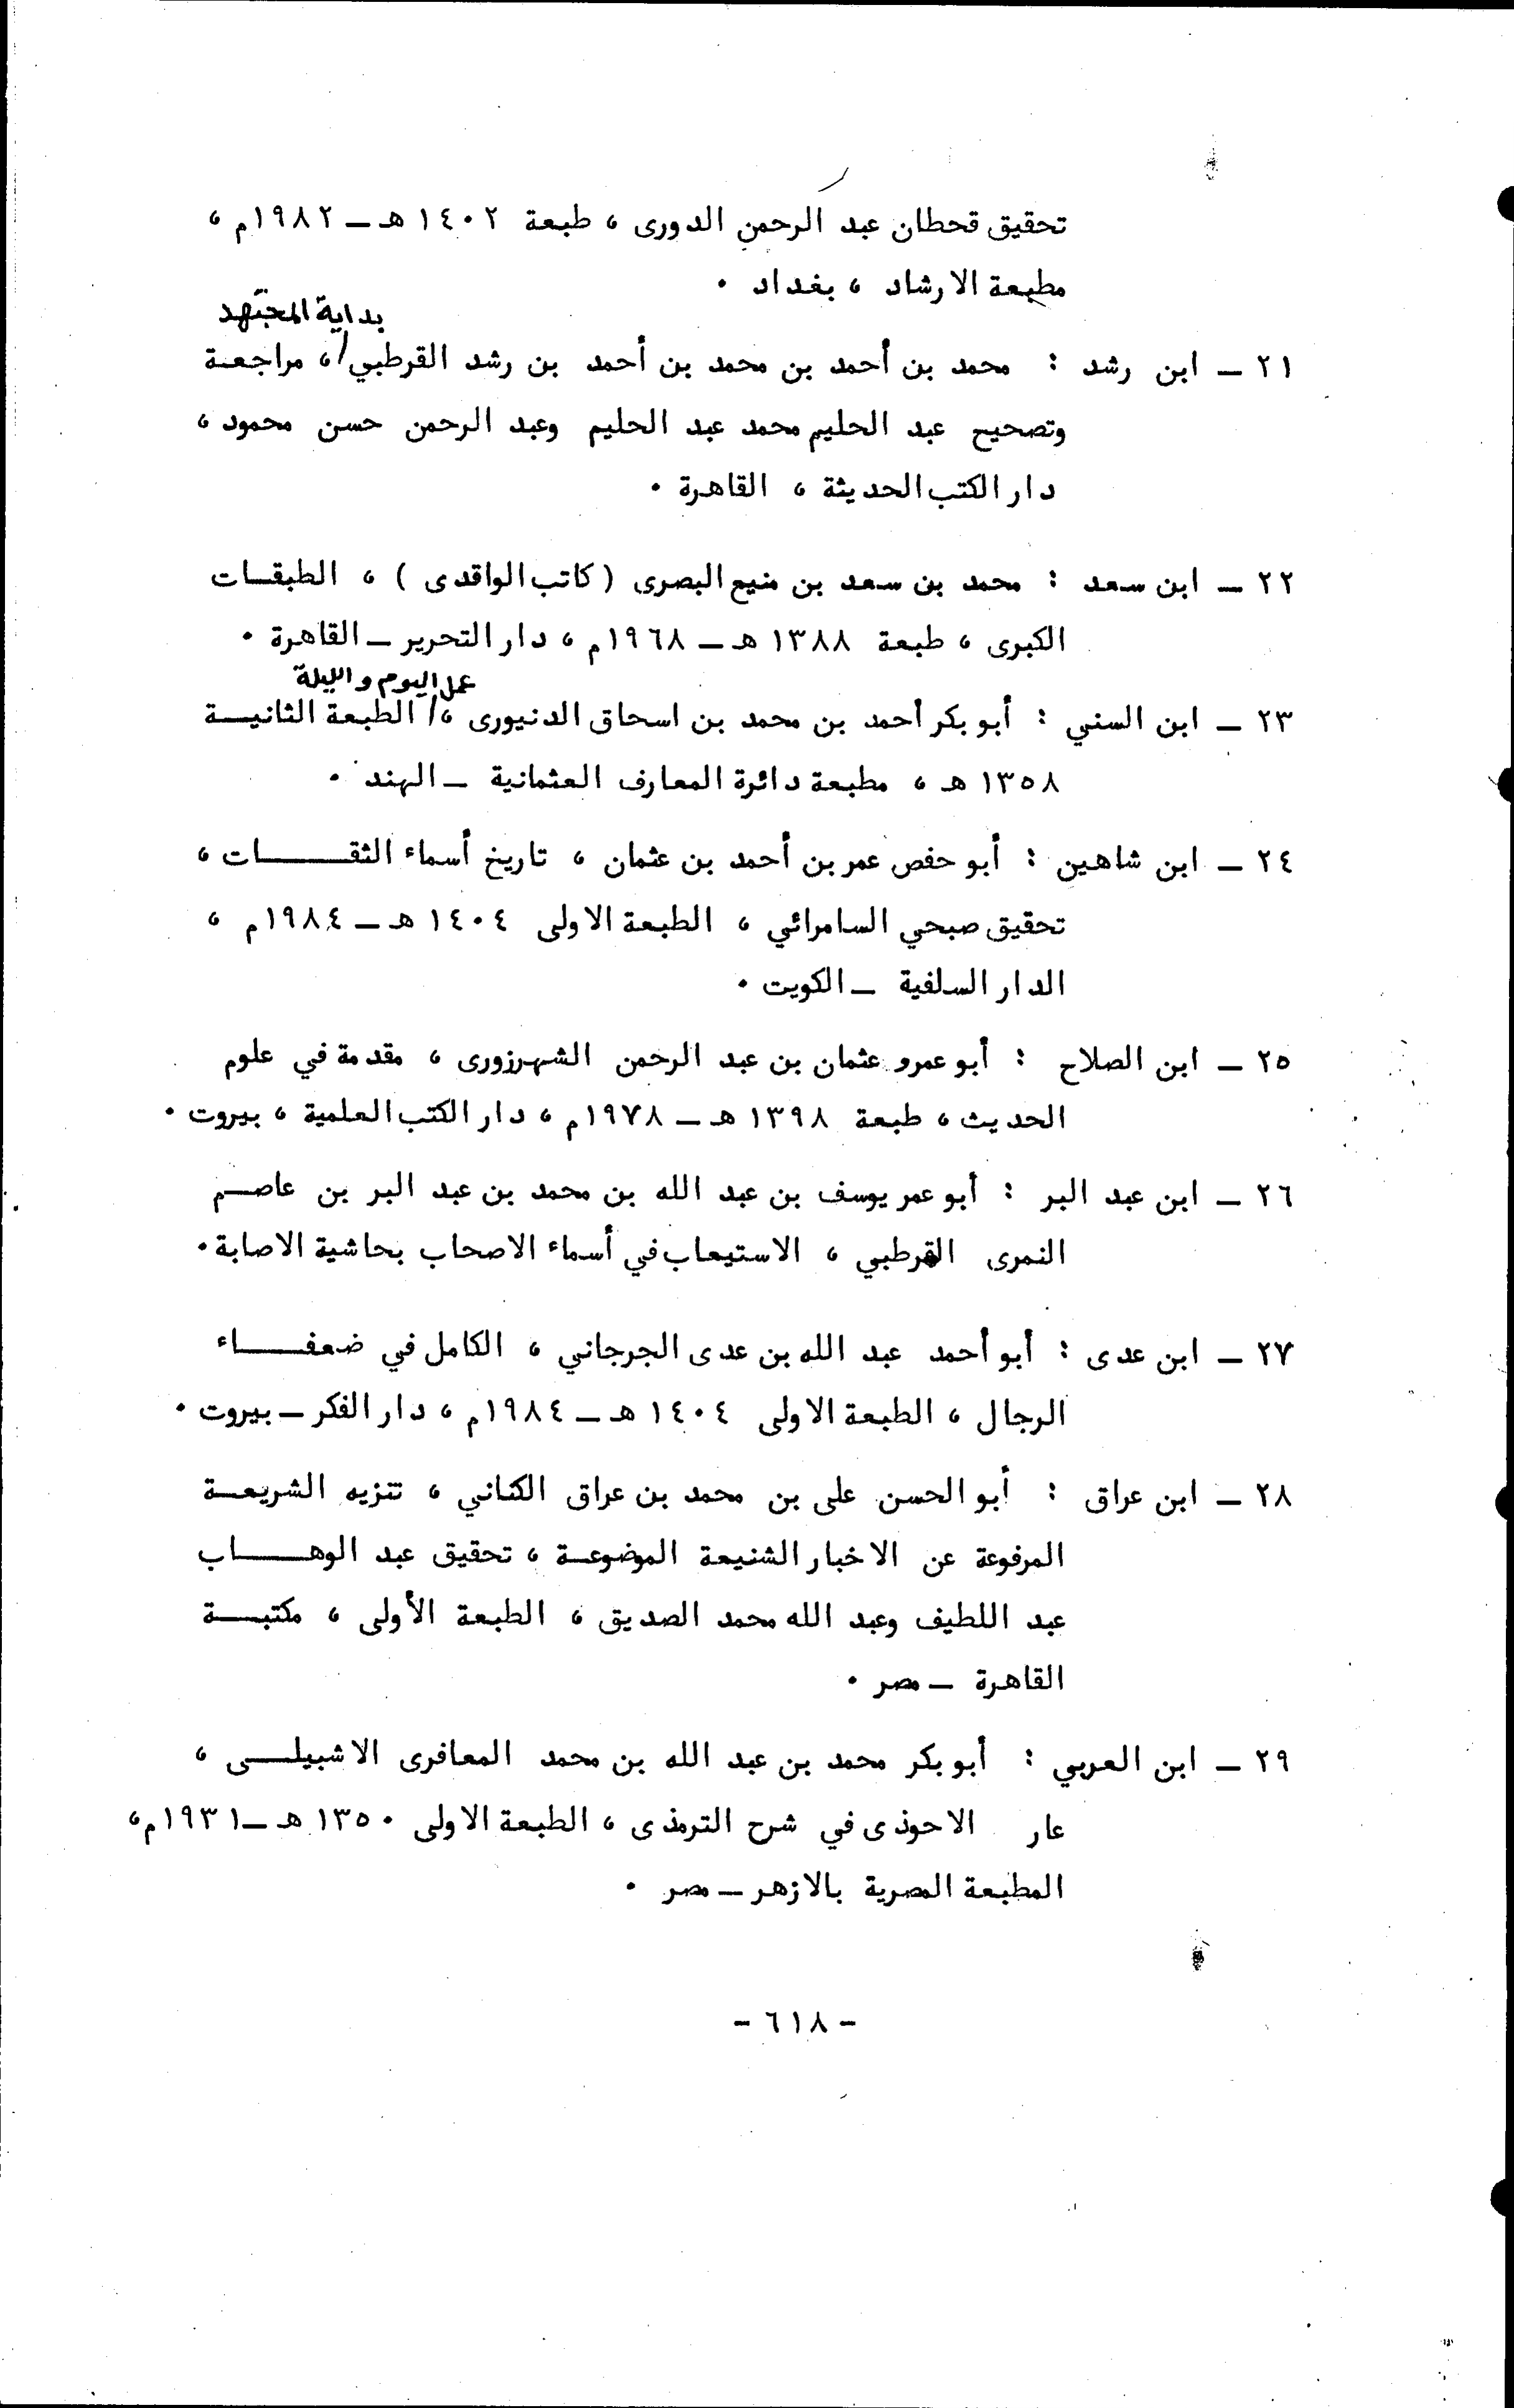 تحقيق قحطان عبد الرحمن الدورى ، طبعة ١٤٠٢ هـ ـ ١٩٨٢م ،
مطبعة الارشاد ، بغداد .
بداية المجتهد
٢١ ـ ابن رشد : محمد بن أحمد بن محمد بن أحمد بن رشد القرطبي/ ، مراجعـة
وتصحيح عبد الحليم محمد عبد الحليم وعبد الرحمن حسن محمود ،
دار الكتب الحديثة ، القاهرة .
٢٢ ـ ابن سعد : محمد بن سعد بن منيع البصرى ( كاتب الواقدى ) ، الطبقـات
الكبرى ، طبعة ١٣٨٨ هـ ـ ١٩٦٨م ، دار التحرير ـ القاهرة .
عمل اليوم والليلة
٢٣ ـ ابن السني : أبو بكر أحمد بن محمد بن اسحاق الدنيورى ،/ الطبعة الثانيـة
١٣٥٨ هـ ، مطبعة دائرة المعارف العثمانية ـ الهند .
٢٤ ـ ابن شاهين : أبو حفص عمر بن أحمد بن عثمان ، تاريخ أسماء الثقـــات ،
تحقيق صبحي السامرائي ، الطبعة الاولى ١٤٠٤ هـ ـ ١٩٨٤م ،
الدار السلفية ـ الكويت .
٢٥ ـ ابن الصلاح : أبو عمرو عثمان بن عبد الرحمن الشهرزورى ، مقدمة في علوم
الحديث ، طبعة ١٣٩٨ هـ ـ ١٩٧٨م ، دار الكتب العلمية ، بيروت .
٢٦ ـ ابن عبد البر : أبو عمر يوسف بن عبد الله بن محمد بن عبد البر بن عاصـم
النمرى القرطبي ، الاستيعاب في أسماء الاصحاب بحاشية الاصابة .
٢٧ ـ ابن عدى : أبو أحمد عبد الله بن عدى الجرجاني ، الكامل في ضعفـــاء
الرجال ، الطبعة الاولى ١٤٠٤ هـ ـ ١٩٨٤م ، دار الفكر ـ بيروت .
٢٨ ـ ابن عراق : أبو الحسن على بن محمد بن عراق الكناني ، تنزيه الشريعـة
المرفوعة عن الاخبار الشنيعة الموضوعـة ، تحقيق عبد الوهـــاب
عبد اللطيف وعبد الله محمد الصديق ، الطبعة الأولى ، مكتبـــة
القاهرة ـ مصر .
٢٩ ـ ابن العربي : أبو بكر محمد بن عبد الله بن محمد المعافرى الاشبيلـــى ،
عار الاحوذى في شرح الترمذى ، الطبعة الاولى ١٣٥٠ هـ ـ ١٩٣١م ،
المطبعة المصرية بالازهر ـ مصر .
- ٦١٨ -